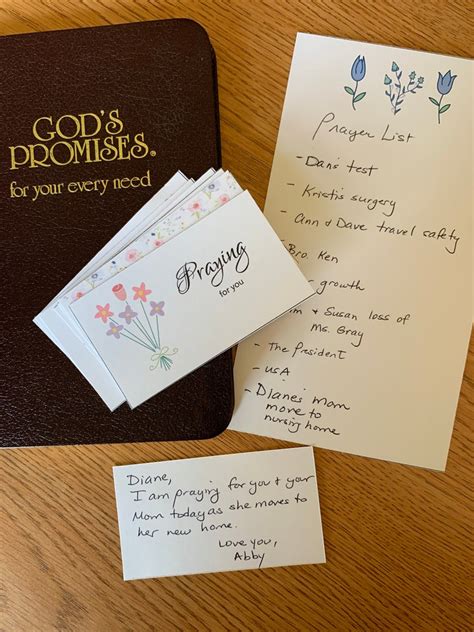 GOD'S
PROMISES®
for your every need
Praying
for you
Prayer List
- Dan's test
- Kristi's surgery
- Ann & Dave travel safety
Bro. Ken
growth
& Susan loss of
Ms. Gray
- The President
- USA
- Diane's mom
move to
nursing home
Diane,
I am praying for you & your
Mom today as she moves to
her new home.
Love you,
Abby